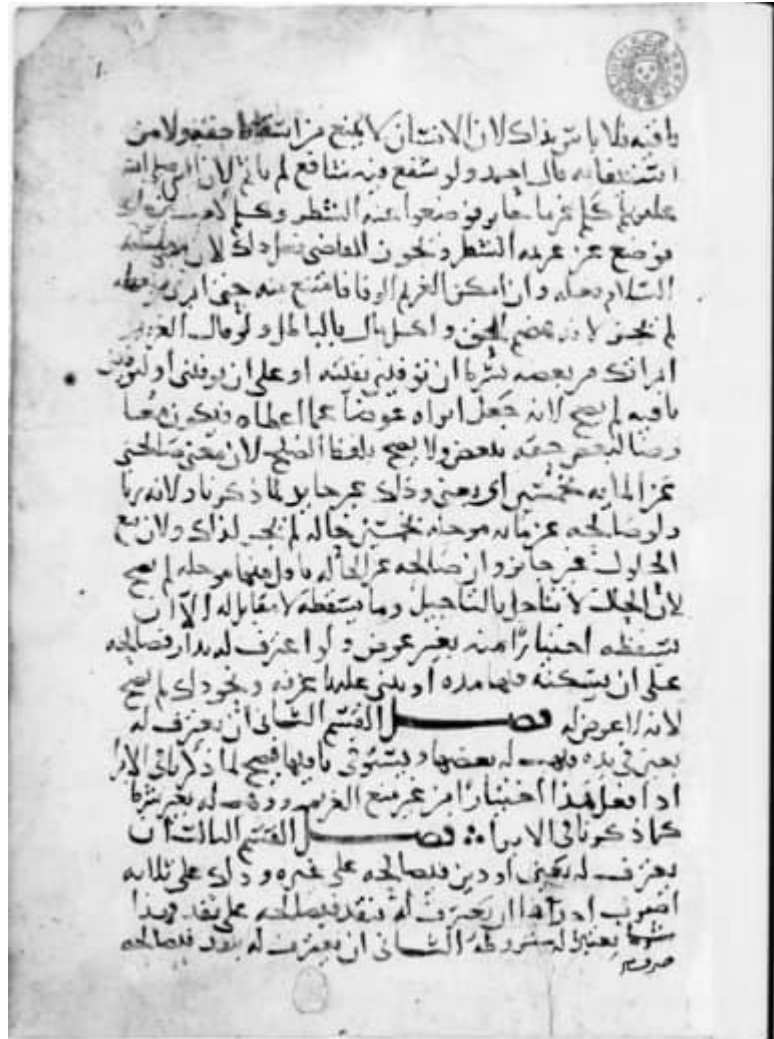 باقيه فلا باس بذلك لان الانسان لا يمنع من اسقاط حقه ولا من
استيفايه قال احمد ولو شفع فيه شافع لم ياثم لان النبي صلى الله
عليه وسلم كلم غرما جابر فوضعوا عنه الشطر وكلم كعب بن مالك
فوضع عن غريمه الشطر ويجوز للقاضي فعل ذلك لان النبي عليه
السلام فعله وان امكن الغريم الوفا فامتنع منه حتى ابري من بعضه
لم يجز لانه هضم للحق واكل مال بالباطل ولو قال الغريم
ابراتك من بعضه بشرط ان توفيني بقيته او على ان توفيني
باقيه لم يصح لانه جعل ابراه عوضا عما اعطاه فيكون معا
وضا لبعض حقه ببعض ولا يصح بلفظ الصلح لان معنى صالحني
عن المايه بخمسين اي بعني وذلك غير جايز لما ذكرنا ولانه ربا
ولو صالحه عن مايه موجله بخمسين حاله لم يجز لذلك ولان بيع
الحلول غير جايز وان صالحه عن الحاله باقل منها موجله لم يصح
لان الحال لا يتاجل بالتاجيل وما يسقطه لا مقابل له الا ان
يسقطه اختيارا منه بغير عوض ولو اعترف له بدار فصالحه
على ان يسكنه فيها مده او يبني عليها غرفه ونحو ذلك لم يصح
لانه لا عوض له فصل القسم الثاني ان يعترف له
بعين في يده فيهب له بعضها ويستوفي باقيها فيصح لما ذكرنا في الابرا
اذا فعل هذا اختيارا من غير منع الغريم ووهب له بغير شرط
كما ذكرنا في الابرا فصل القسم الثالث ان
يعترف له بعين او دين فيصالحه على غيره وذلك على ثلاثه
اضرب احدها ان يعترف له بنقد فيصالحه على نقد فهذا
صرف يعتبر له شروطه الثاني ان يعترف له بنقد فيصالحه